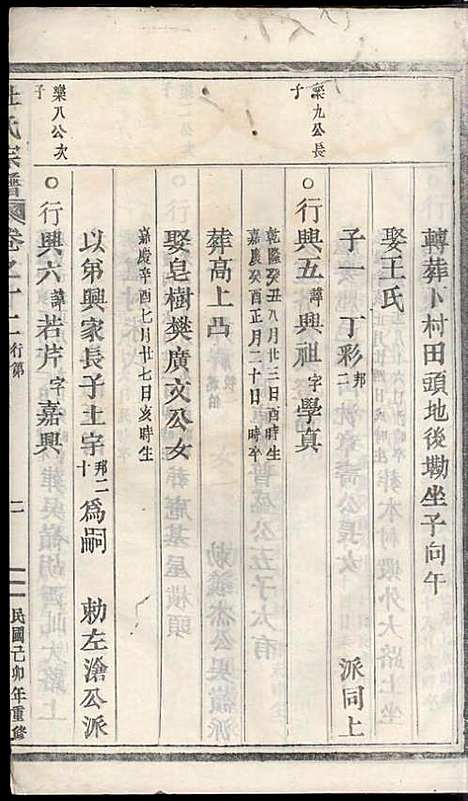 轉葬卜村田頭地後塝坐子向午
娶王氏
子一　丁彩邦二　派同上
樂九公長子
○行興五諱興祖字學真
乾隆癸丑八月廿三日酉時生
嘉慶癸酉正月二十日　時卒
葬高上凸
娶皂樹樊廣文公女
嘉慶辛酉七月廿七日亥時生
以弟興家長子士字邦二十為嗣　勅左滄公派
樂八公次子
○行興六諱若芹字嘉興
杜氏宗譜　卷之十二　行第　二　民國己卯年重修